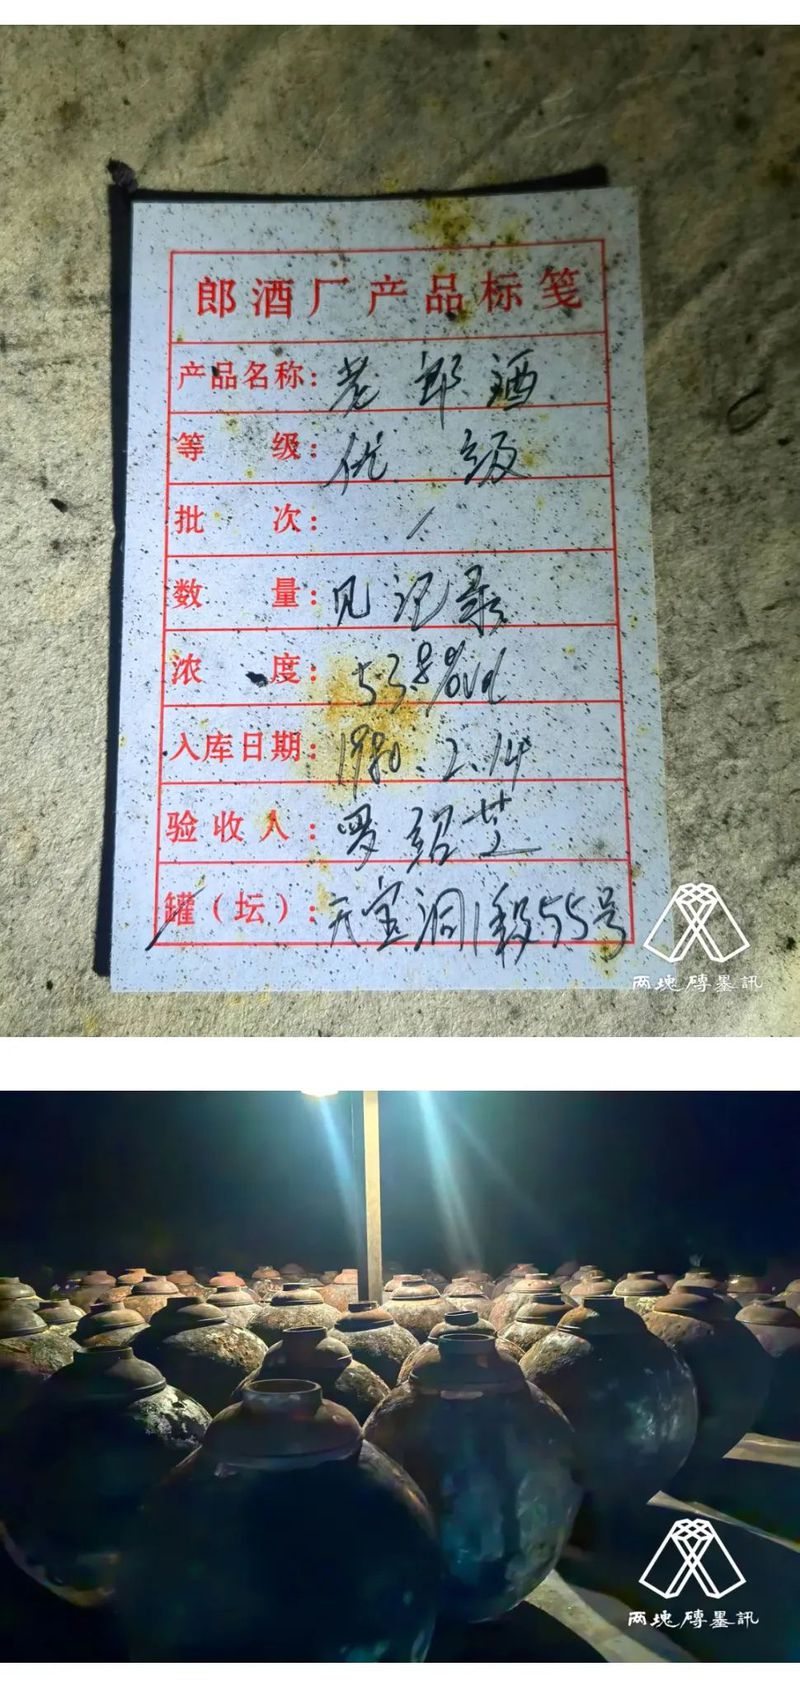 郎酒厂产品标笺
产品名称：老郎酒
等级：优级
批次：/
数量：见记录
浓度：53.8%vol
入库日期：1980.2.14
验收人：罗绍芝
罐（坛）：天宝洞1段55号
两塊磚墨訊
两塊磚墨訊